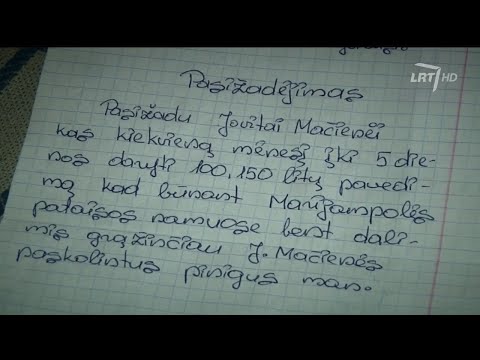 LRT HD
Pasižadėjimas
Pasižadu Jovitai Mačienėi
kas kiekvieną mėnesį įki 5 die-
nos daryti 100, 150 litų pavedi-
mą kad būnant Marijampolės
pataisos namuose bent dali-
mis grąžinčiau J. Mačienės
paskolintus pinigus man.